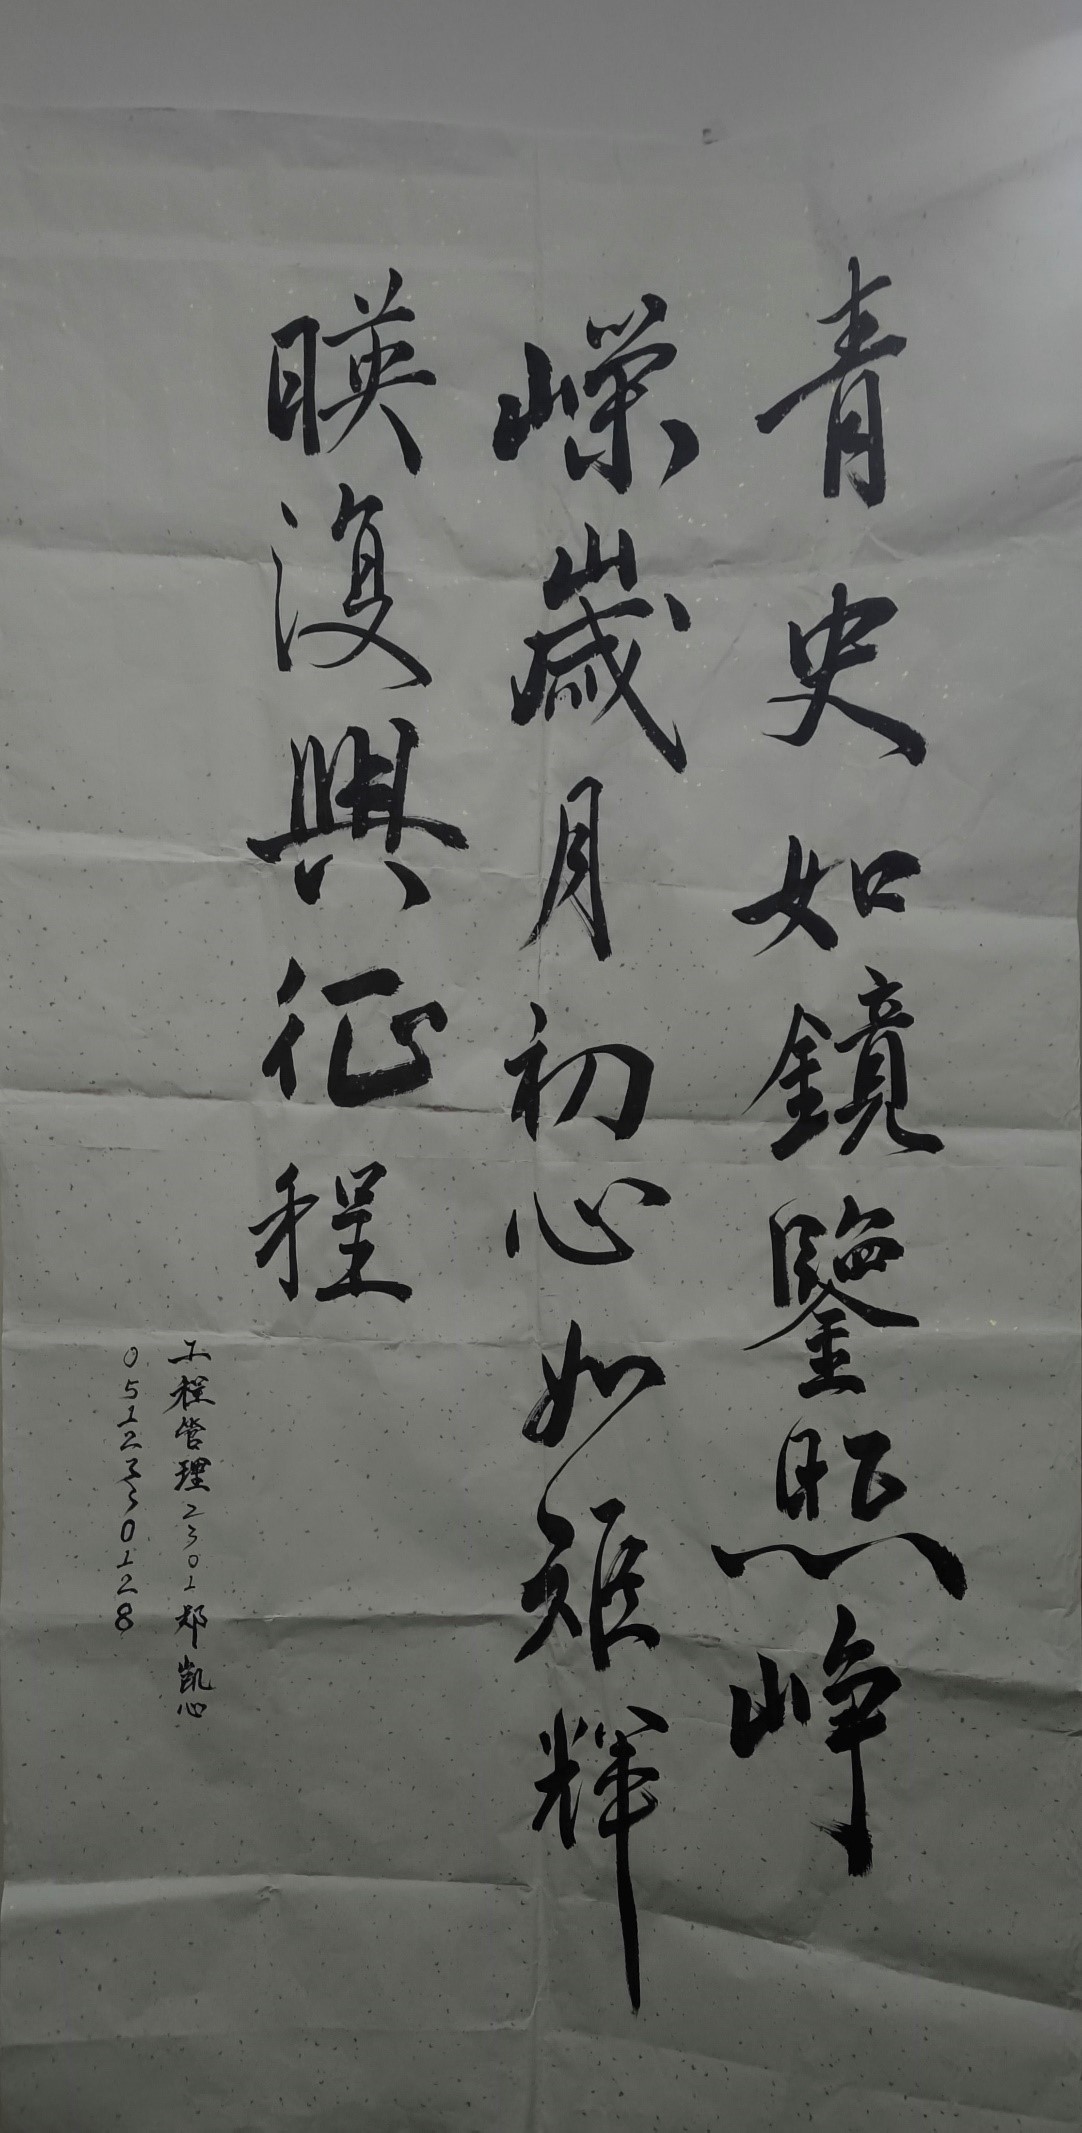 青史如鏡鑒照崢
嶸歲月初心如炬輝
暎復興征程
工程管理2301鄭凯心
0512330128